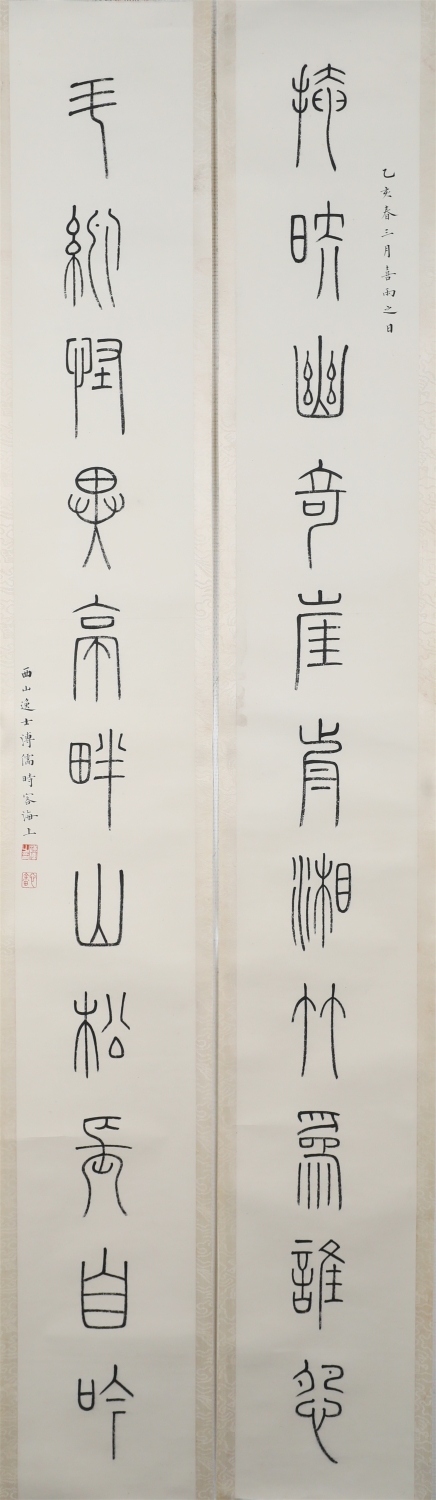 乙亥春三月喜雨之日
掩映幽奇崖前湘竹為誰怨
怪異亭畔山松長自吟
西山逸士溥儒時客海上